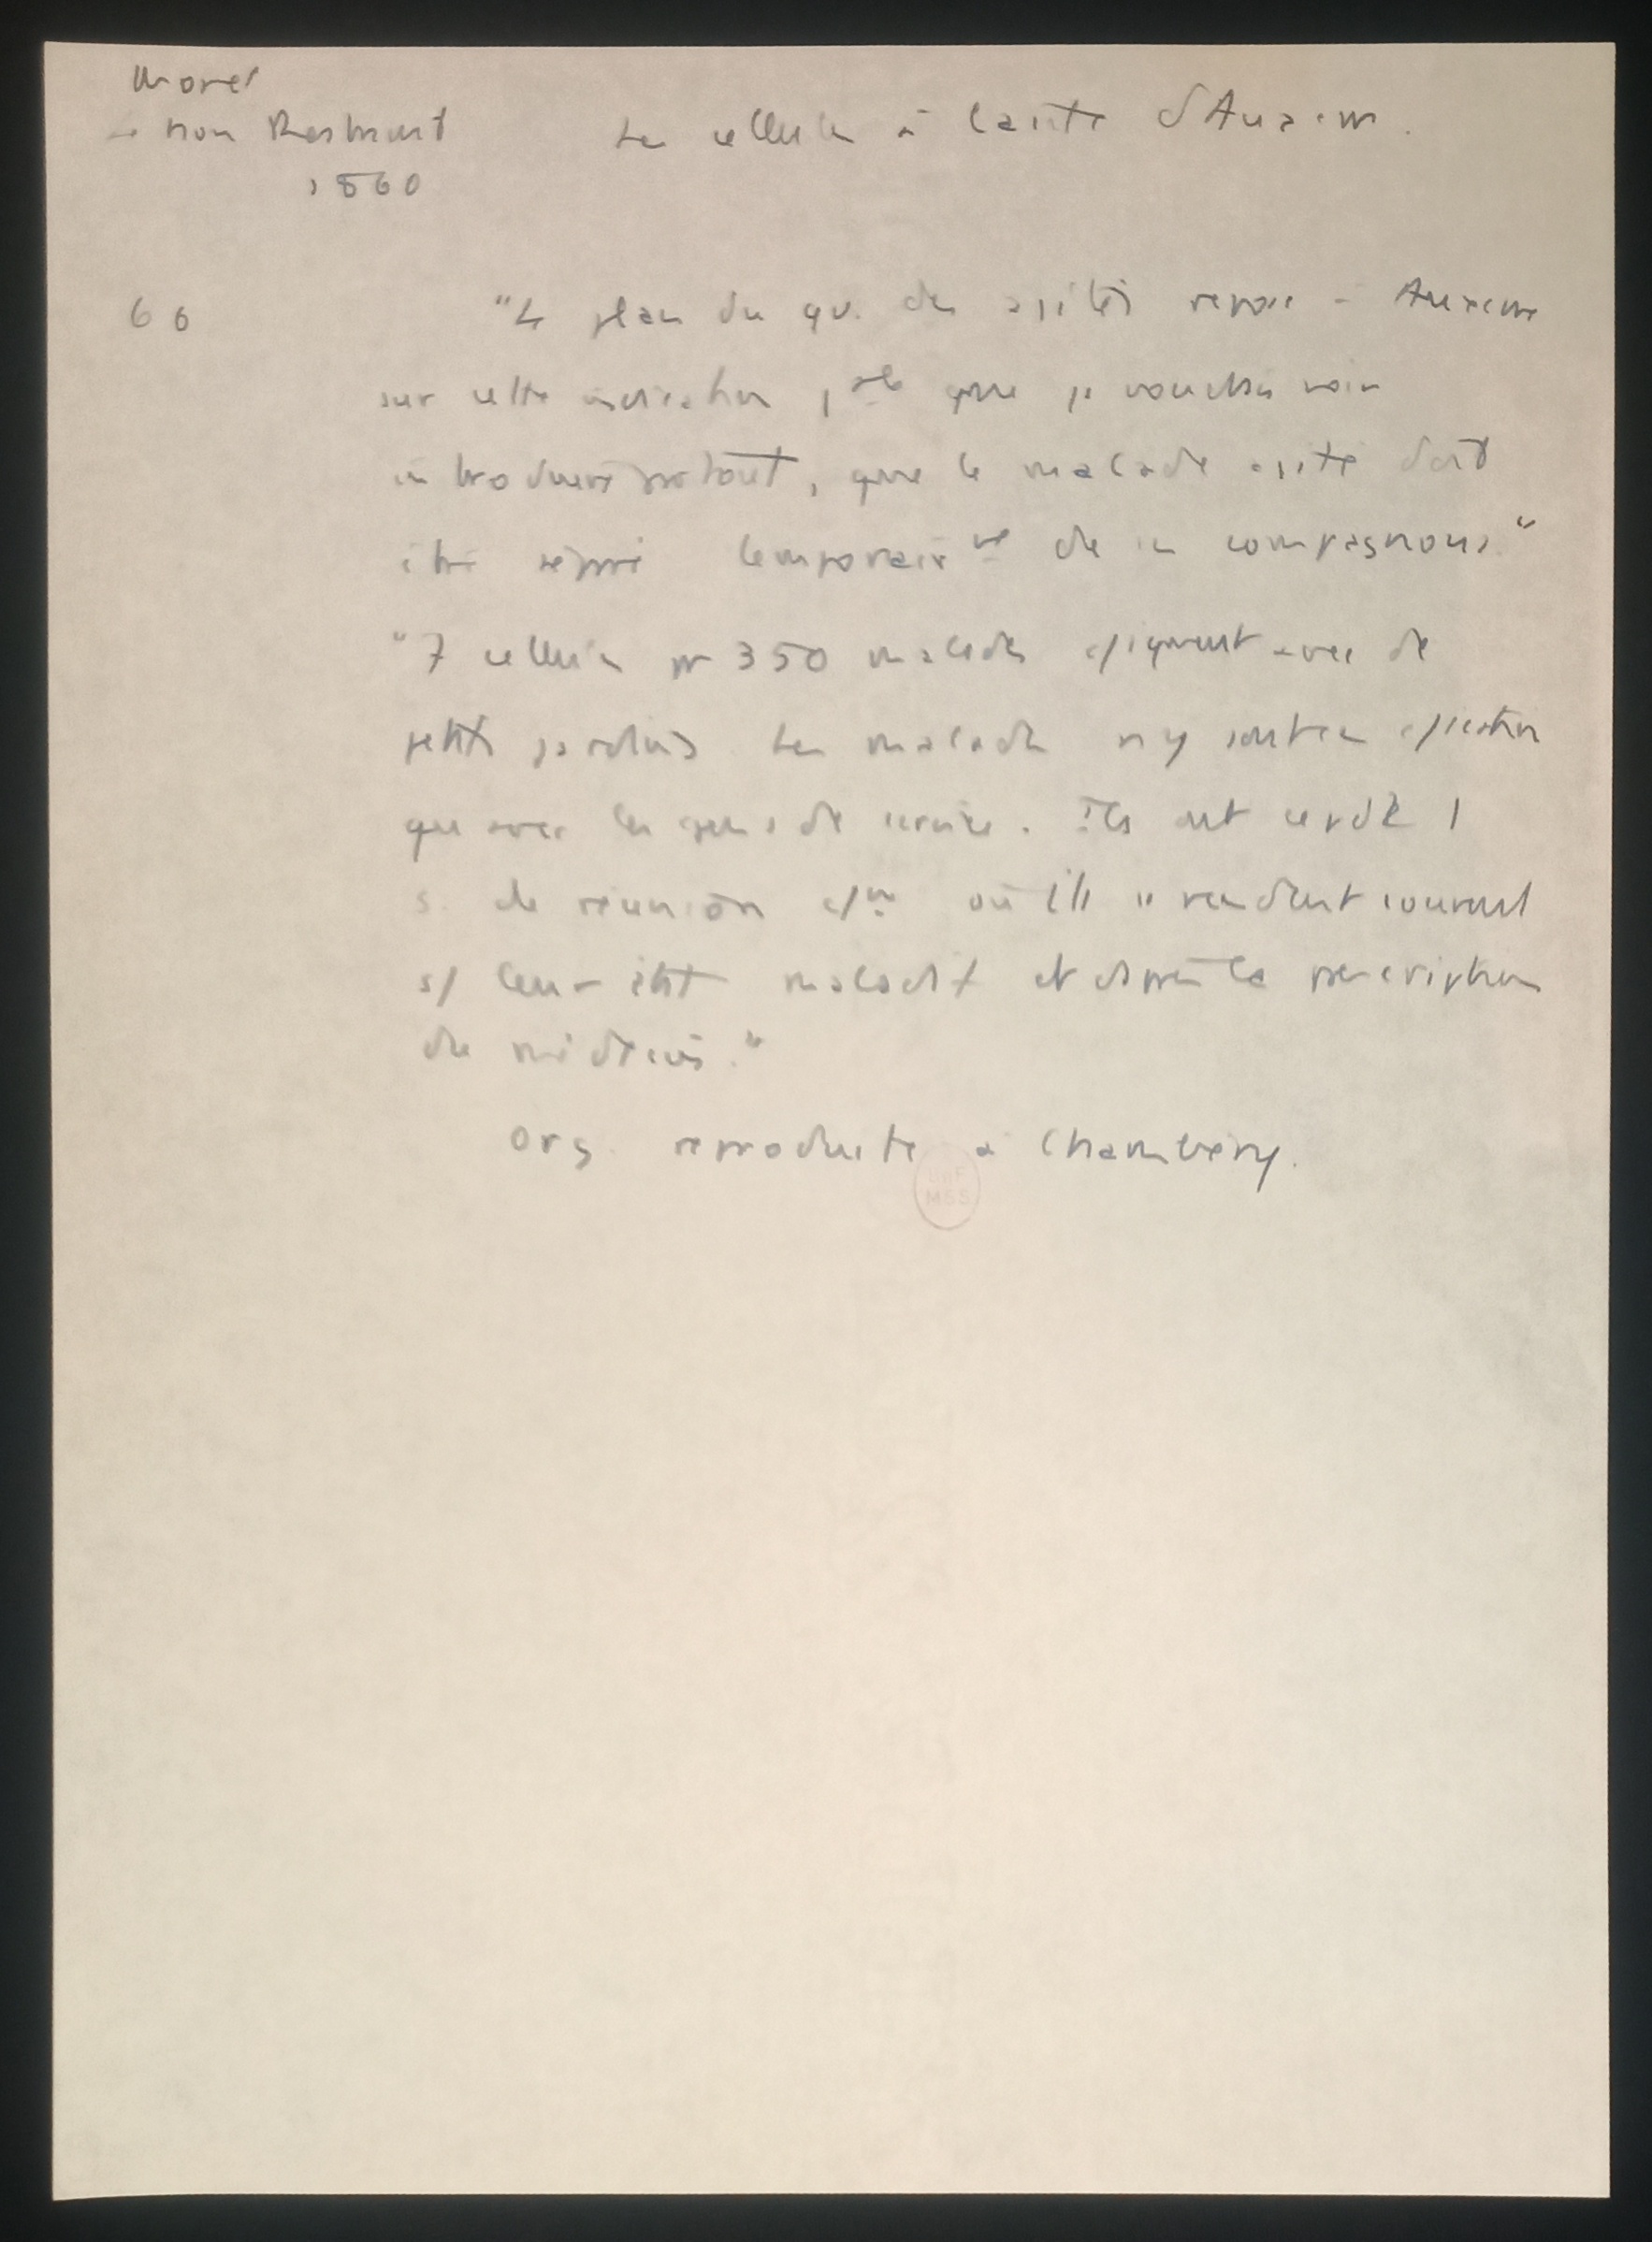 Morel
Le Non Restraint
1860
Les cellules à l'asile d'Auxerre.
66
"Le plan du qu. des agités repose à Auxerre
sur cette indication, que je voudrais voir
introduire partout, que le malade agité doit
être séparé temporairemt de ses compagnons."
"7 cellules pr 350 malades avec de
petits jardins. Les malades n'y sont en
que avec les gens de service. Ils ont 1
s. de réunion où ils se rendent souvent
s/ leur état maladif et d'après la prescription
des médecins."
Org. reproduite à Chambéry.
BnF
MSS